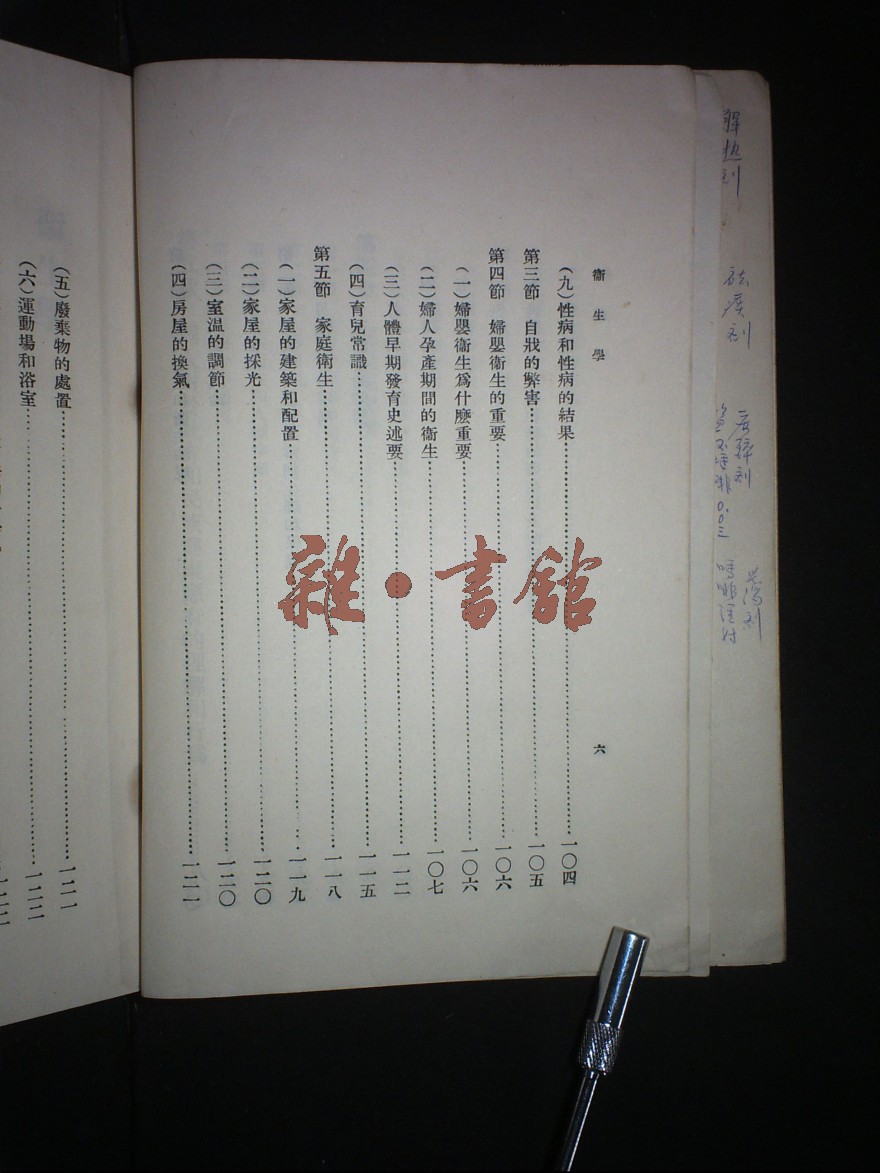 衞生學
六
(九)性病和性病的結果……一〇四
第三節 自戕的弊害……一〇五
第四節 婦嬰衞生的重要……一〇六
(一)婦嬰衞生爲什麼重要……一〇六
(二)婦人孕產期間的衞生……一〇七
(三)人體早期發育史述要……一一二
(四)育兒常識……一一五
第五節 家庭衞生……一一八
(一)家屋的建築和配置……一一九
(二)家屋的採光……一二〇
(三)室温的調節……一二〇
(四)房屋的換氣……一二一
(五)廢棄物的處置……一二一
(六)運動場和浴室……一二二
雜·書館
解热剂
祛痰剂